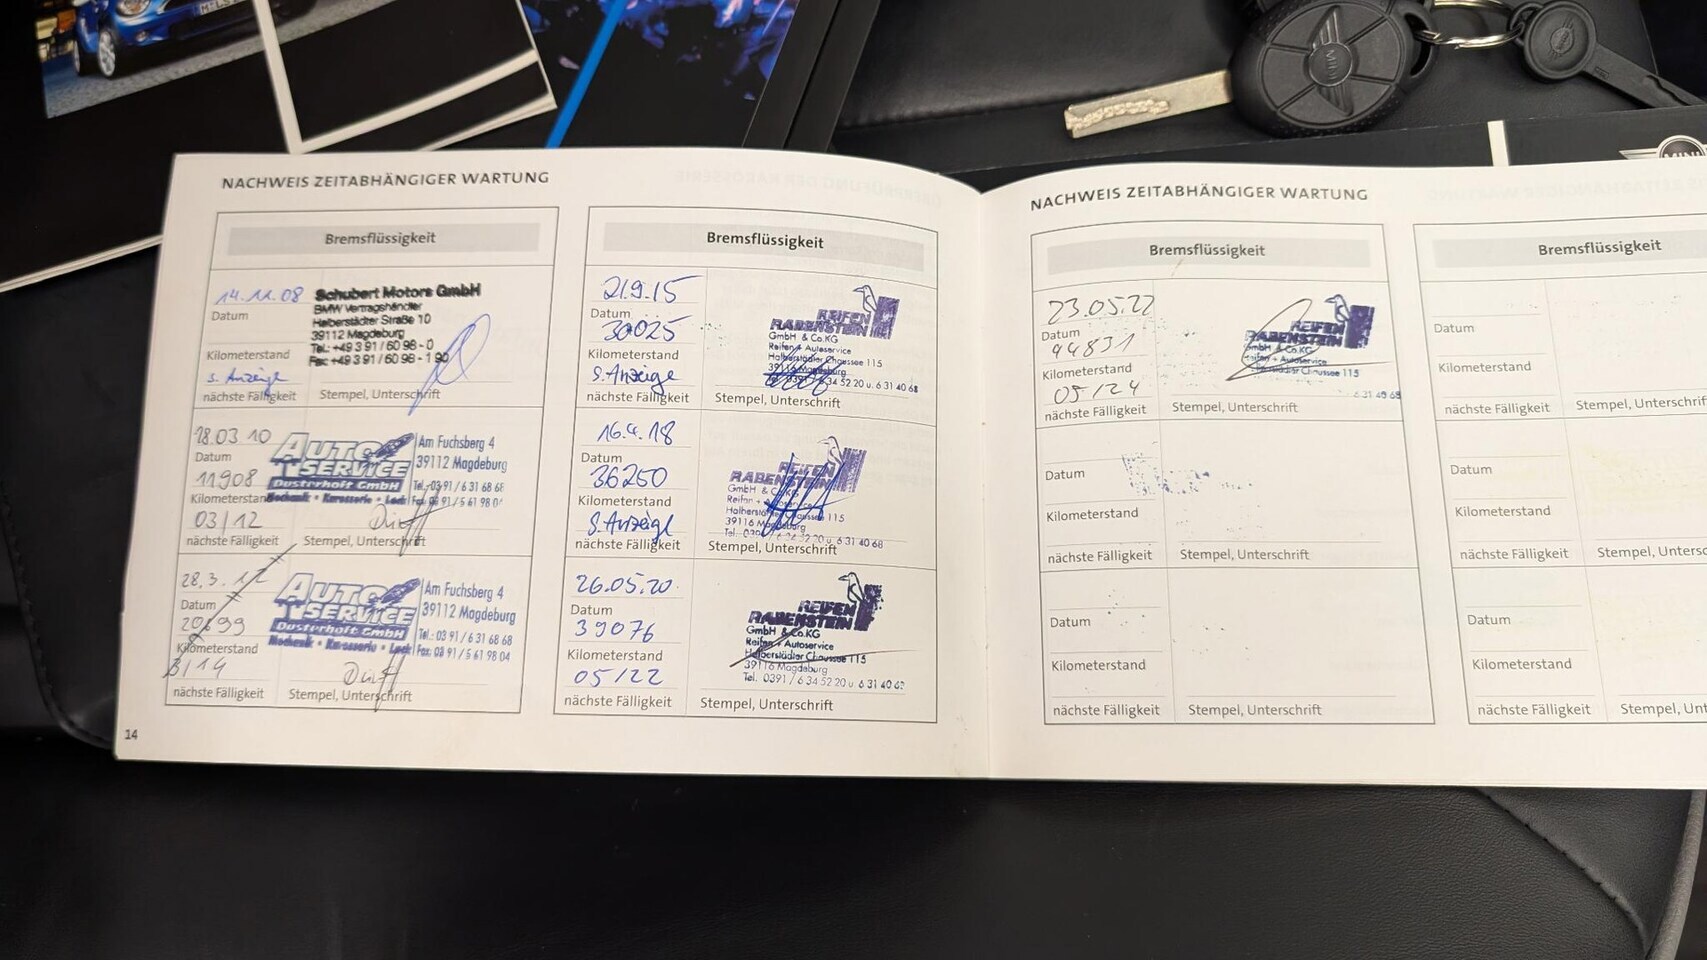 MINI
MINI
NACHWEIS ZEITABHÄNGIGER WARTUNG
Bremsflüssigkeit
14.11.08
Datum
Kilometerstand
s. Anzeige
nächste Fälligkeit
Schubert Motors GmbH
BMW Vertragshändler
Halberstädter Straße 10
39112 Magdeburg
Tel.: +49 3 91 / 60 98 - 0
Fax: +49 3 91 / 60 98 - 1 90
Stempel, Unterschrift
18.03 10
Datum
11908
Kilometerstand
03/12
nächste Fälligkeit
AUTO
SERVICE
Dusterhoft GmbH
Mechanik • Karosserie • Lack
Am Fuchsberg 4
39112 Magdeburg
Tel.: 03 91 / 6 31 68 68
Fax: 03 91 / 5 61 98 04
Stempel, Unterschrift
28.3.12
Datum
20699
Kilometerstand
3/14
nächste Fälligkeit
AUTO
SERVICE
Dusterhoft GmbH
Mechanik • Karosserie • Lack
Am Fuchsberg 4
39112 Magdeburg
Tel.: 03 91 / 6 31 68 68
Fax: 03 91 / 5 61 98 04
Stempel, Unterschrift
14
Bremsflüssigkeit
21.9.15
Datum
30025
Kilometerstand
s. Anzeige
nächste Fälligkeit
REIFEN
RABENSTEIN
GmbH & Co.KG
Reifen + Autoservice
Halberstädter Chaussee 115
39116 Magdeburg
Tel. 0391 / 6 34 52 20 u. 6 31 40 68
Stempel, Unterschrift
16.4.18
Datum
36250
Kilometerstand
s. Anzeige
nächste Fälligkeit
REIFEN
RABENSTEIN
GmbH & Co.KG
Reifen + Autoservice
Halberstädter Chaussee 115
39116 Magdeburg
Tel. 0391 / 6 34 52 20 u. 6 31 40 68
Stempel, Unterschrift
26.05.20.
Datum
39076
Kilometerstand
05/22
nächste Fälligkeit
REIFEN
RABENSTEIN
GmbH & Co.KG
Reifen + Autoservice
Halberstädter Chaussee 115
39116 Magdeburg
Tel. 0391 / 6 34 52 20 u. 6 31 40 68
Stempel, Unterschrift
NACHWEIS ZEITABHÄNGIGER WARTUNG
Bremsflüssigkeit
23.05.22
Datum
44831
Kilometerstand
05/24
nächste Fälligkeit
REIFEN
RABENSTEIN
GmbH & Co.KG
Reifen + Autoservice
Halberstädter Chaussee 115
6 31 40 68
Stempel, Unterschrift
Datum
Kilometerstand
nächste Fälligkeit
Stempel, Unterschrift
Datum
Kilometerstand
nächste Fälligkeit
Stempel, Unterschrift
Bremsflüssigkeit
Datum
Kilometerstand
nächste Fälligkeit
Stempel, Unterschrif
Datum
Kilometerstand
nächste Fälligkeit
Stempel, Untersc
Datum
Kilometerstand
nächste Fälligkeit
Stempel, Unt